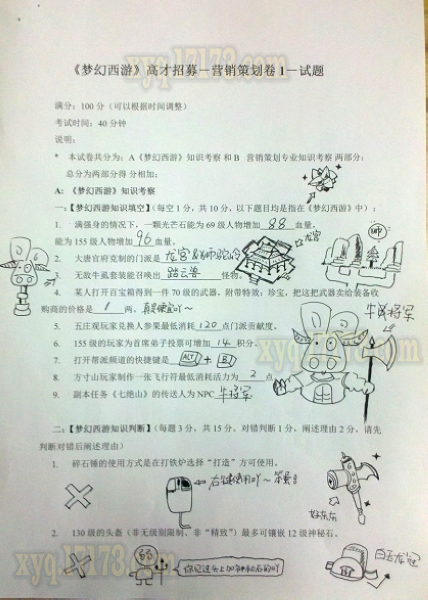 xyq.17173.com
《梦幻西游》高才招募－营销策划卷1－试题
满分：100分（可以根据时间调整）
考试时间：40分钟
说明：
* 本试卷共分为：A《梦幻西游》知识考察和B 营销策划专业知识考察 两部分；
总分为两部分得 分相加；
A：《梦幻西游》知识考察
一：【梦幻西游知识填空】（每空1分，共10分，以下题目均是指在《梦幻西游》中）：
1. 满强身的情况下，一颗光芒石能为69级人物增加 88 血量，
能为155级人物增加 96 血量。
龙宫
2. 大唐官府克制的门派是 龙宫
帅
3. 无敌牛虱套装能召唤出 踏云兽 怪物。
4. 某人打开百宝箱得到一件70级的武器，附带特效：珍宝，把这把武器卖给装备收
购商的价格是 1 两。真是便宜吖～
牛将军
5. 五庄观玩家兑换人参果最低消耗 120 点门派贡献度。
6. 155级的玩家为首席弟子投票可增加 14 积分。
7. 打开帮派频道的快捷键是 ALT + B
8. 方寸山玩家制作一张飞行符最低消耗活力为 2 点
9. 副本任务《七绝山》的传送人为NPC 牛将军
二：【梦幻西游知识判断】（每题3分，共15分，对错判断1分，阐述理由2分，请先
判断对错后阐述理由）
1. 碎石锤的使用方式是在打铁炉选择“打造”方可使用。
右键使用吖～笨蛋！
好东东
2. 130级的头盔（非无级别限制、非“精致”）最多可镶嵌12级神秘石。
白玉龙冠